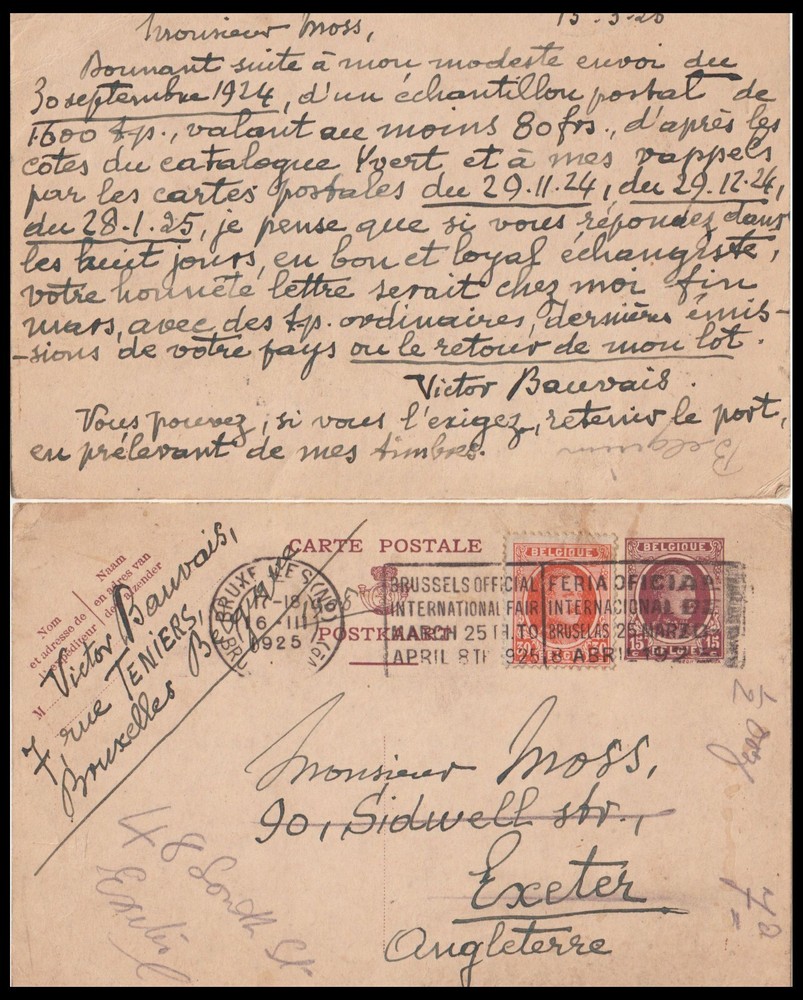 Monsieur Moss, 15-3-25
Donnant suite à mon modeste envoi du
30 septembre 1924, d'un échantillon postal de
1600 t.p., valant au moins 80 frs., d'après les
côtes du catalogue Yvert et à mes rappels
par les cartes postales du 29.11.24, du 29.12.24,
du 28.1.25, je pense que si vous répondez dans
les huit jours, en bon et loyal échangiste,
votre honnête lettre serait chez moi fin
mars, avec des t.p. ordinaires, dernières émis-
-sions de votre pays ou le retour de mon lot.
Victor Bauvais.
Vous pouvez, si vous l'exigez, retenir le port,
en prélevant de mes timbres.
Belgium
CARTE POSTALE
POSTKAART
Nom
et adresse de
l'expéditeur
Naam
en adres van
de afzender
M
Victor Bauvais,
7 rue TENIERS,
Bruxelles Belgique
BRUXELLES (N)
17-18
16 III
1925
BRUSSELS OFFICIAL
INTERNATIONAL FAIR
MARCH 25TH. TO
APRIL 8TH 1925
FERIA OFICIAL
INTERNACIONAL DE
BRUSELAS 25 MARZO-
8 ABRIL 192
BELGIQUE
30
BELGIE
BELGIQUE
15 15
BELGIE
Monsieur Moss,
90, Sidwell str.,
Exeter
Angleterre
48 South St
Exeter
1/2